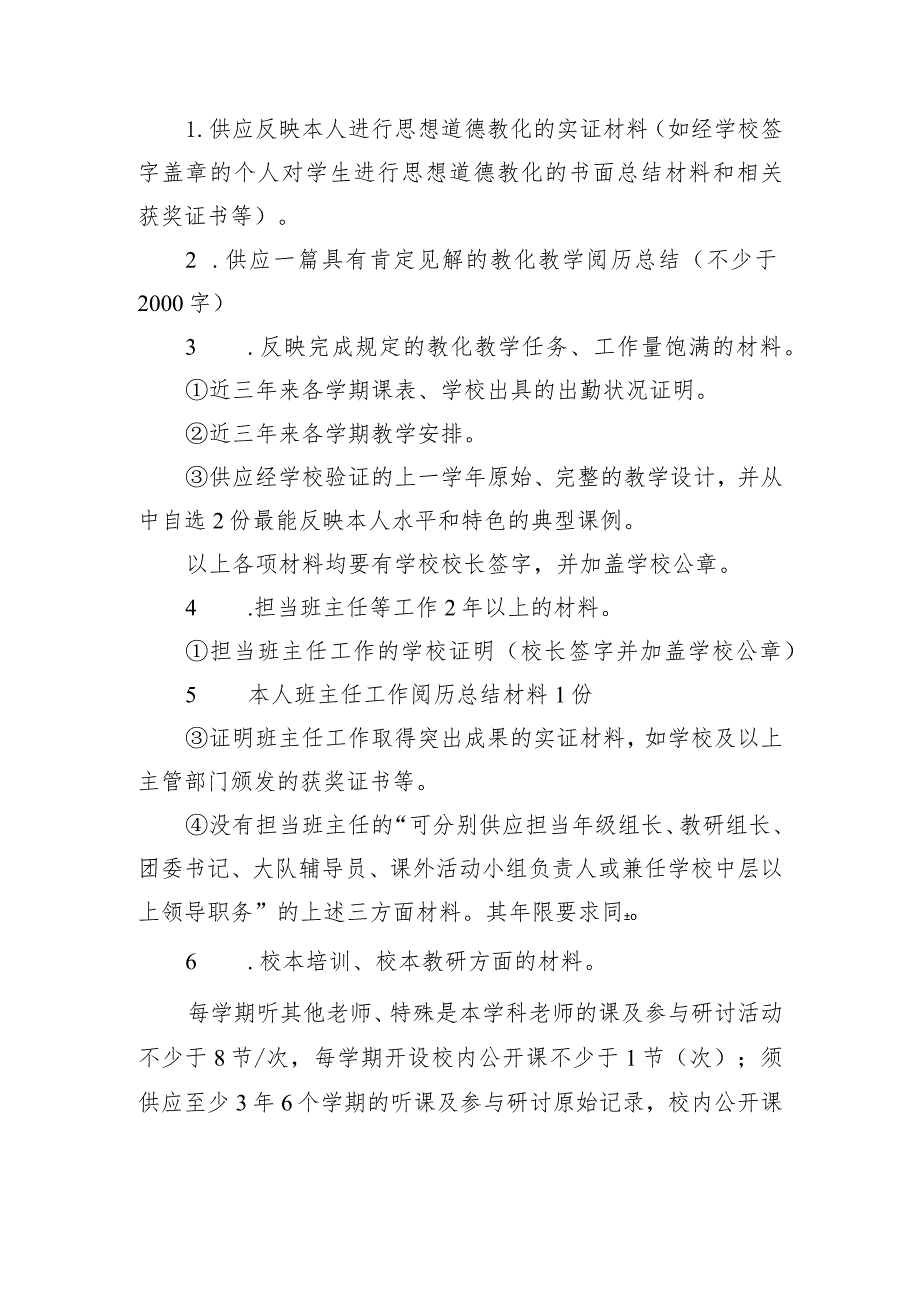 1. 供应反映本人进行思想道德教化的实证材料（如经学校签
字盖章的个人对学生进行思想道德教化的书面总结材料和相关
获奖证书等）。
2 . 供应一篇具有肯定见解的教化教学阅历总结（不少于
2000 字）
3 . 反映完成规定的教化教学任务、工作量饱满的材料。
①近三年来各学期课表、学校出具的出勤状况证明。
②近三年来各学期教学安排。
③供应经学校验证的上一学年原始、完整的教学设计，并从
中自选 2 份最能反映本人水平和特色的典型课例。
以上各项材料均要有学校校长签字，并加盖学校公章。
4 . 担当班主任等工作 2 年以上的材料。
①担当班主任工作的学校证明（校长签字并加盖学校公章）
5 本人班主任工作阅历总结材料 1 份
③证明班主任工作取得突出成果的实证材料，如学校及以上
主管部门颁发的获奖证书等。
④没有担当班主任的“可分别供应担当年级组长、教研组长、
团委书记、大队辅导员、课外活动小组负责人或兼任学校中层以
上领导职务”的上述三方面材料。其年限要求同±o
6 . 校本培训、校本教研方面的材料。
每学期听其他老师、特殊是本学科老师的课及参与研讨活动
不少于 8 节/次，每学期开设校内公开课不少于 1 节（次）；须
供应至少 3 年 6 个学期的听课及参与研讨原始记录，校内公开课